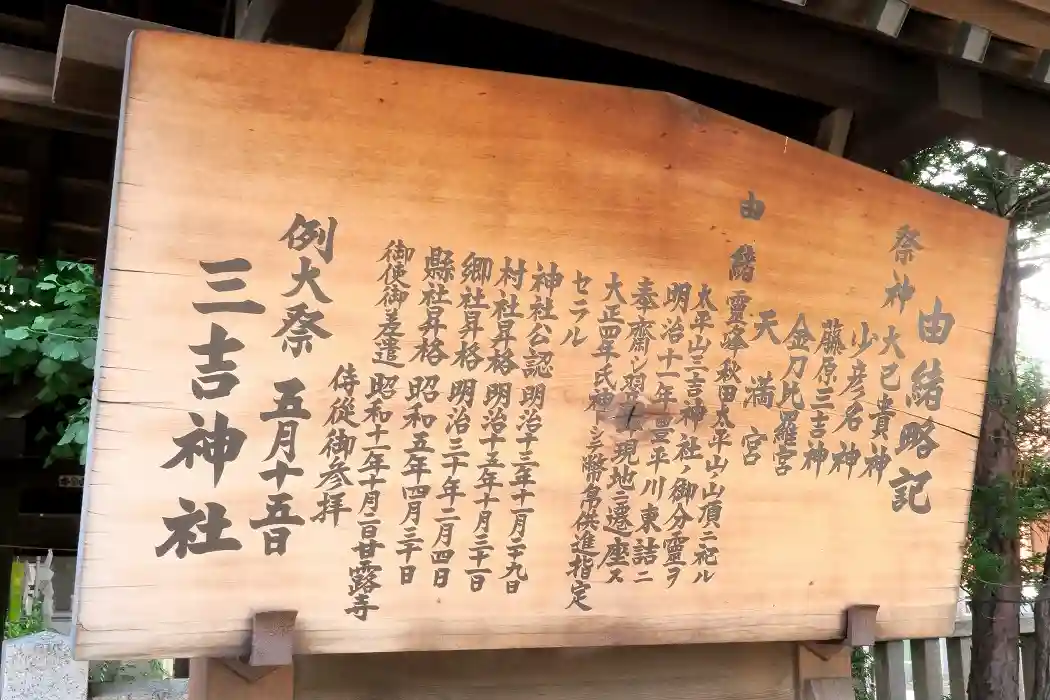 由緒略記
祭神 大己貴神
少彦名神
藤原三吉神
金刀比羅宮
天満宮
由緒 靈峰秋田太平山ノ山頂ニ祀ル
太平山三吉神社ノ御分靈ヲ
明治十一年豊平川東詰ニ
奉齋シ翌 現地ニ遷座ス
大正四年氏神 シ幣帛供進指定
セラル
神社公認 明治十三年十一月二十九日
村社昇格 明治十五年十月三十一日
郷社昇格 明治三十年二月四日
縣社昇格 昭和五年四月三十日
御使御差遣 昭和十一年十月二日甘露寺
侍從御参拝
例大祭 五月十五日
三吉神社